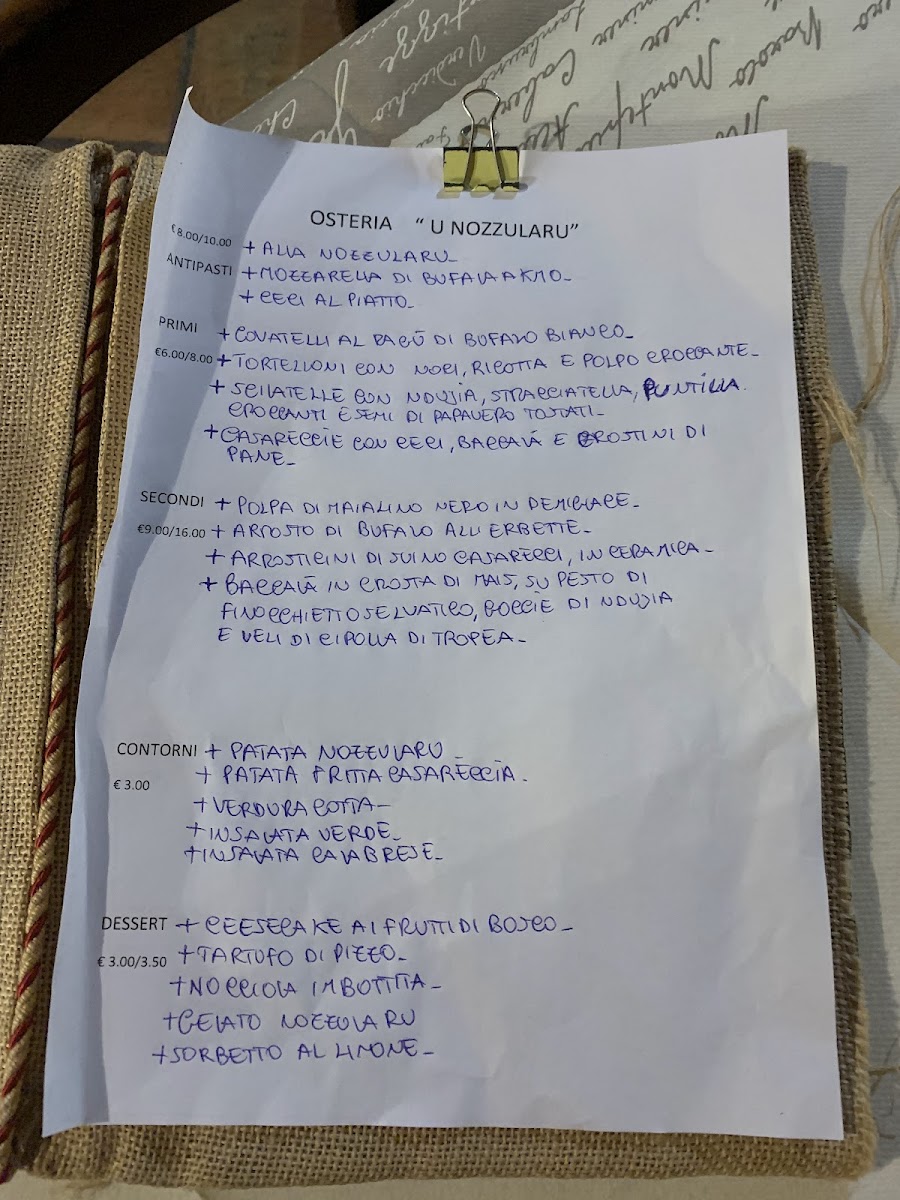 Verdicchio
OSTERIA " U NOZZULARU"
€8.00/10.00 + ALLA NOZZULARU
ANTIPASTI + MOZZARELLA DI BUFALA A KM0
+ CECI AL PIATTO
PRIMI + COVATELLI AL RAGÙ DI BUFALO BIANCO
€6.00/8.00 + TORTELLONI CON NOCI, RICOTTA E POLPO CROCCANTE
+ SCILATELLE CON NDUJIA, STRACCIATELLA, PUNTILLA
CROCCANTI E SEMI DI PAPAVERO TOSTATI
+ CASARECCIE CON CECI, BACCALÀ E CROSTINI DI
PANE
SECONDI + POLPA DI MAIALINO NERO IN DEMIGLACE
€9.00/16.00 + ARROSTO DI BUFALO ALLE ERBETTE
+ ARROSTICINI DI SUINO CASARECCI, IN CERAMICA
+ BACCALÀ IN CROSTA DI MAIS, SU PESTO DI
FINOCCHIETTO SELVATICO, GOCCIE DI NDUJIA
E VELI DI CIPOLLA DI TROPEA
CONTORNI + PATATA NOZZULARU
€ 3.00 + PATATA FRITTA CASARÈCCIA.
+ VERDURA COTTA
+ INSALATA VERDE
+ INSALATA CALABRESE
DESSERT + CEESECAKE AI FRUTTI DI BOSCO
€ 3.00/3.50 + TARTUFO DI PIZZO
+ NOCCIOLA IMBOTTITA
+ GELATO NOZZULARU
+ SORBETTO AL LIMONE